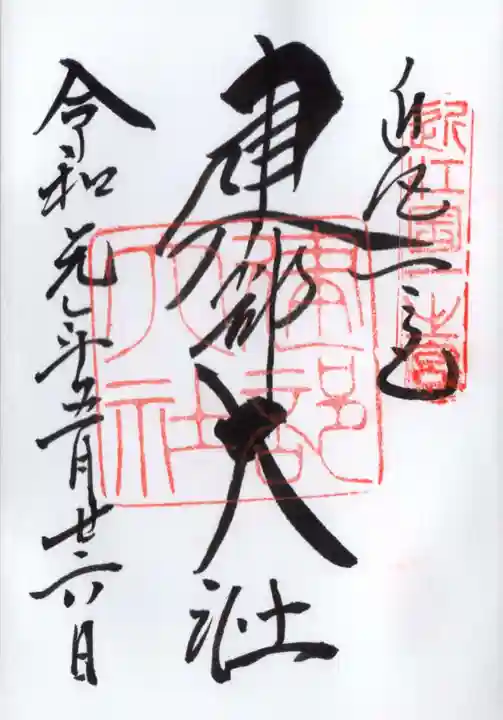 近江一之宮
近江国一之宮
建部大社
建部大社
令和元年五月廿六日